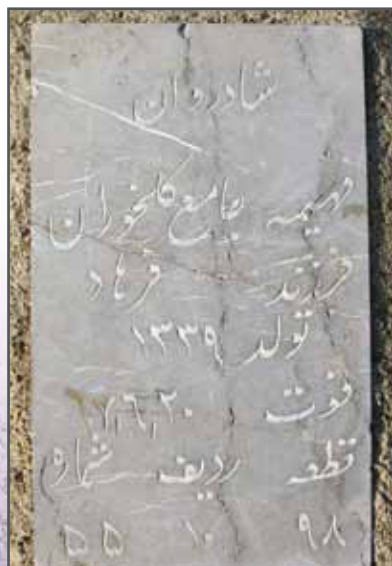 شادروان
فهیمه جامع کلخوران
فرزند فرهاد
تولد ۱۳۳۹
فوت ۷٫۶٫۲۰
قطعه ردیف شماره
۹۸ ۱۰ ۵۵